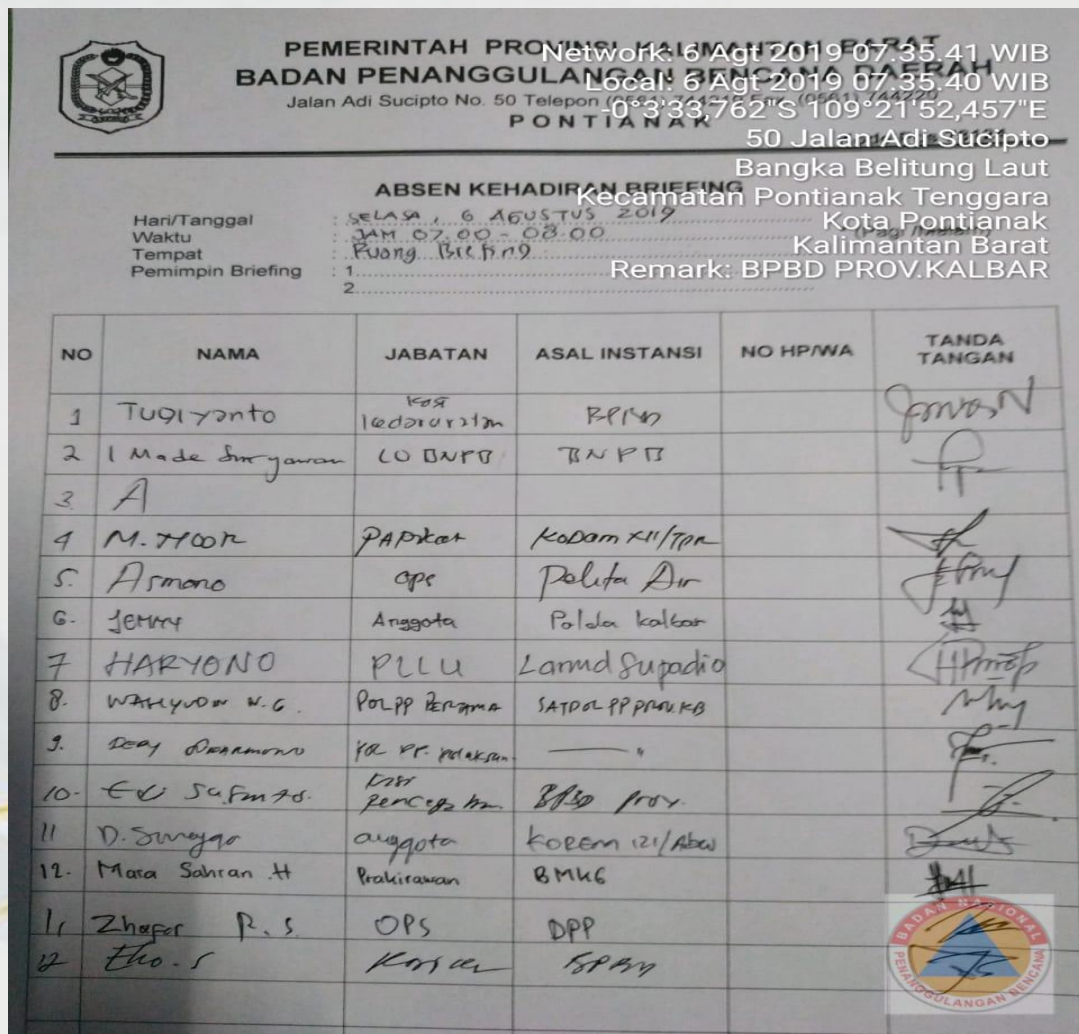 PEMERINTAH PROVINSI KALIMANTAN BARAT
BADAN PENANGGULANGAN BENCANA DAERAH
Jalan Adi Sucipto No. 50 Telepon
PONTIANAK
Network: 6 Agt 2019 07.35.41 WIB
Local: 6 Agt 2019 07.35.40 WIB
-0°3'33,762"S 109°21'52,457"E
50 Jalan Adi Sucipto
Bangka Belitung Laut
Kecamatan Pontianak Tenggara
Kota Pontianak
Kalimantan Barat
Remark: BPBD PROV.KALBAR
ABSEN KEHADIRAN BRIEFING
Hari/Tanggal : SELASA, 6 AGUSTUS 2019
Waktu : JAM 07.00 - 08.00
Tempat : Ruang Briefing
Pemimpin Briefing : 1
2
NO NAMA JABATAN ASAL INSTANSI NO HP/WA TANDA TANGAN
1 Tugiyanto
2 I Made LO BNPB BNPB
3. A
4 M. NOOR Kodam XII/TPR
5. Asmono ops Pelita Air
6. JEMMY Anggota Polda kalbar
7 HARYONO PLLU Lanud Supadio
8. POLPP SATPOL PP PROV.KB
9.
10- BPBD prov.
11 anggota KOREM 121/Abw
12. Mara Sahran .H Prakirawan BMKG
11 Zhafer R.S OPS DPP
12 Eko.S
BADAN NASIONAL
PENANGGULANGAN BENCANA